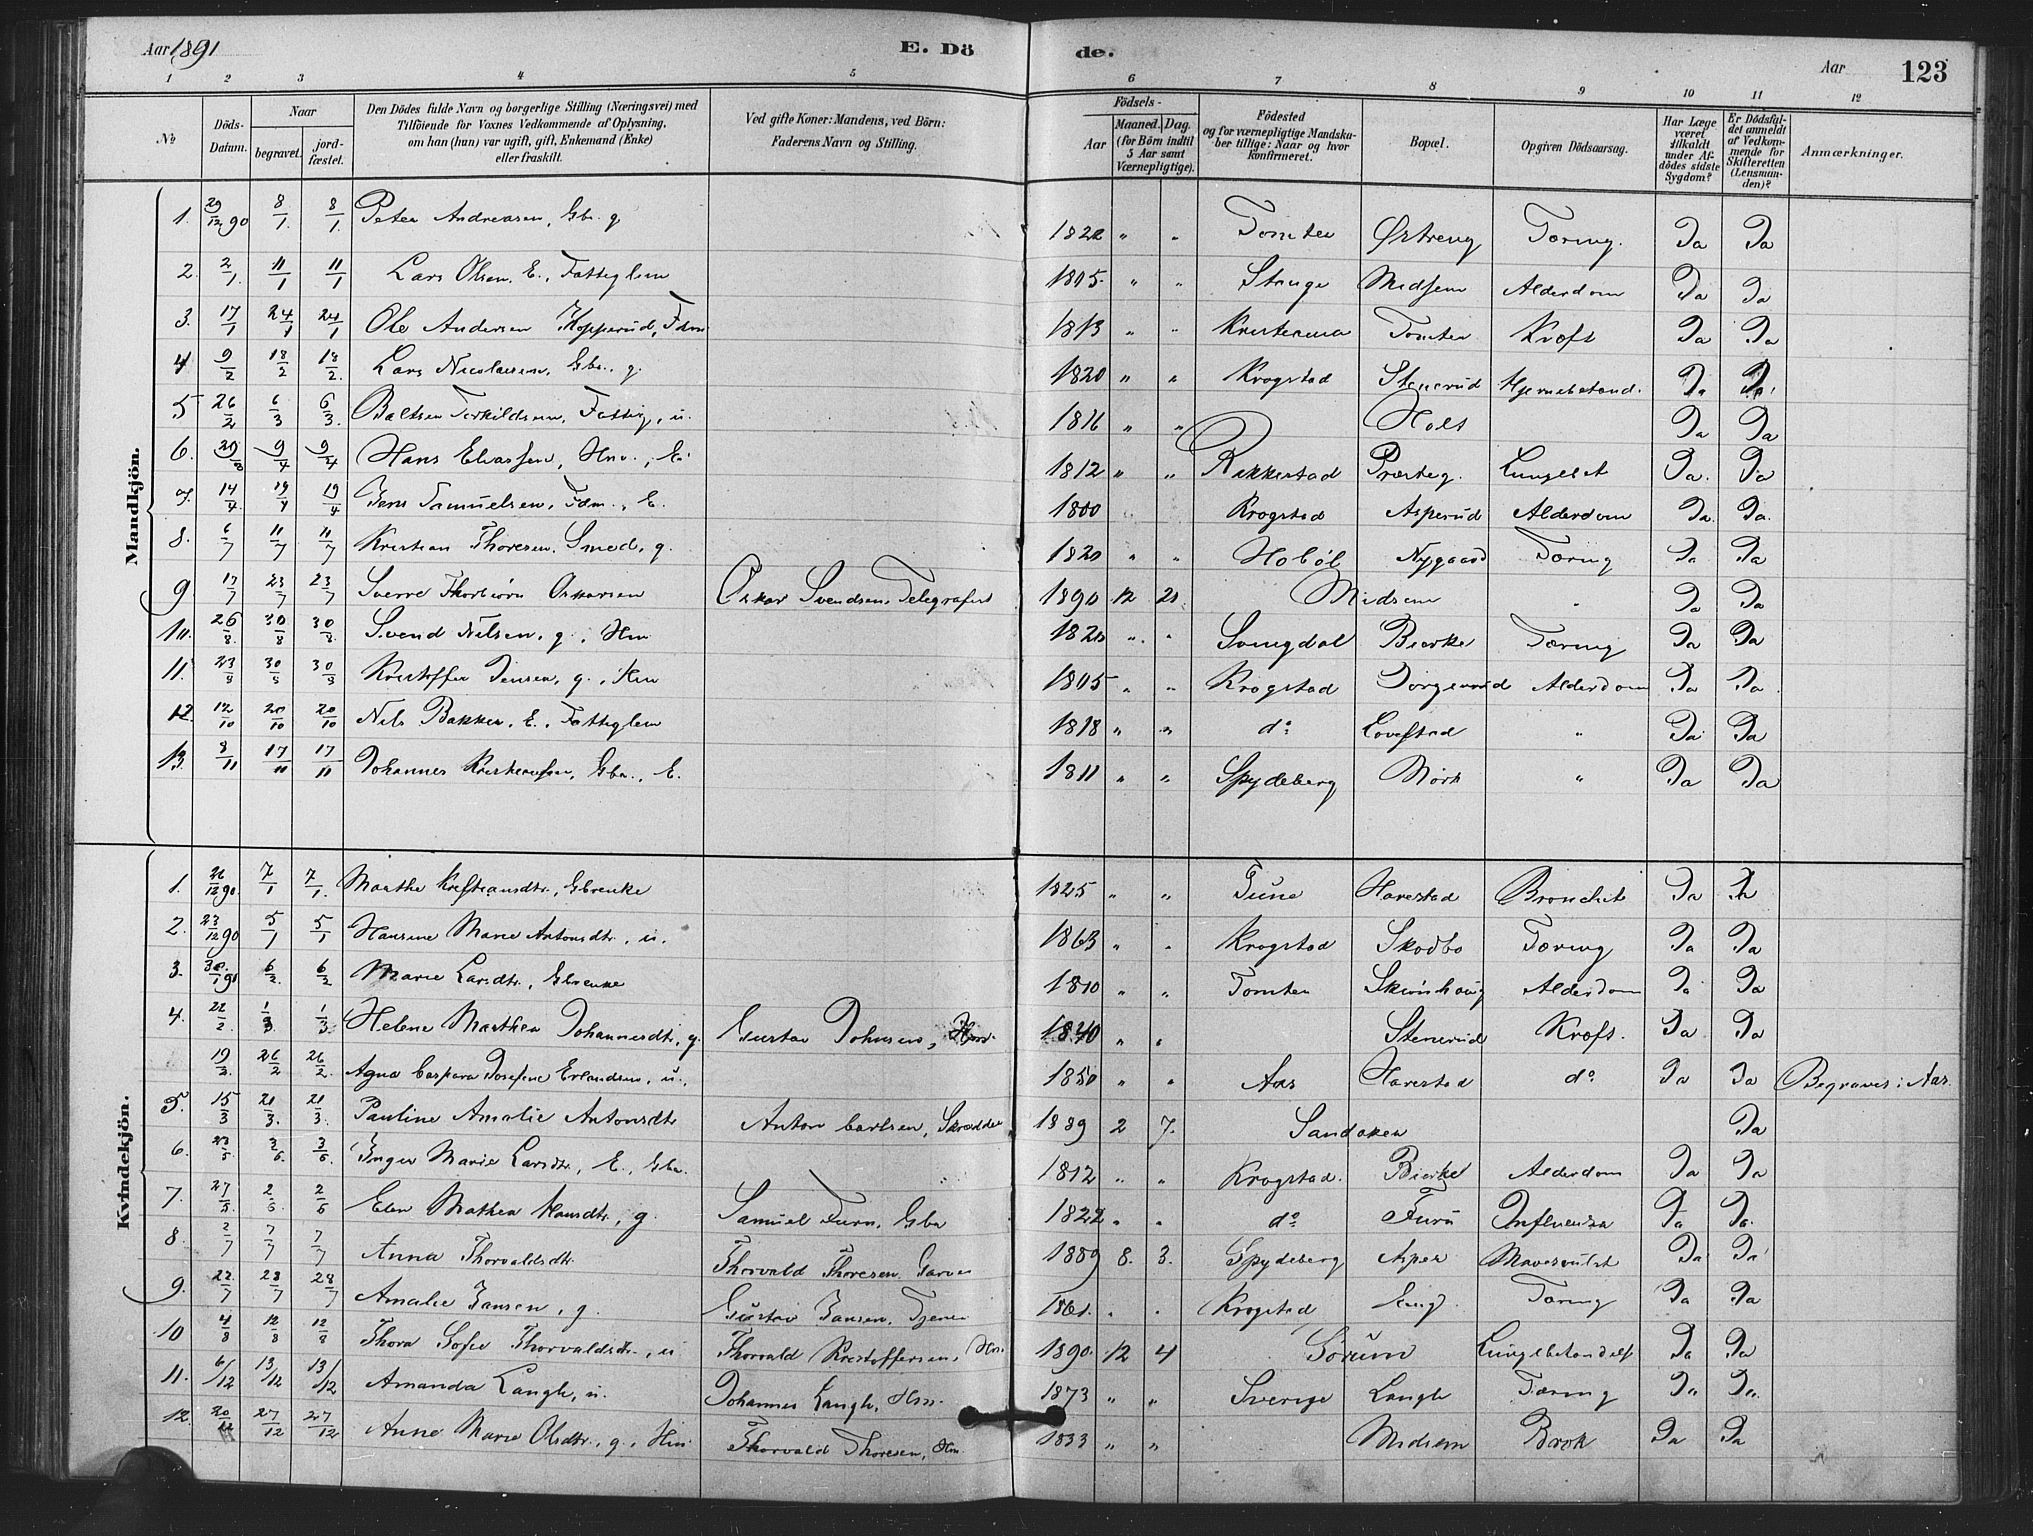 Aar 1891
E. Döde.
Aar
123
1 2 3 4 5 6 7 8 9 10 11 12
№
Döds-Datum.
Naar
begravet.
jordfæstet.
Den Dödes fulde Navn og borgerlige Stilling (Næringsvei) med Tilföiende for Voxnes Vedkommende af Oplysning, om han (hun) var ugift, gift, Enkemand (Enke) eller fraskilt.
Ved gifte Koner: Mandens, ved Börn: Faderens Navn og Stilling.
Födsels-
Aar
Maaned. Dag.
(for Börn indtil 5 Aar samt Værnepligtige).
Födested og for værnepligtige Mandskaber tillige: Naar og hvor konfirmeret.
Bopæl.
Opgiven Dödsaarsag.
Har Læge været tilkaldt under Afdödes sidste Sygdom?
Er Dödsfaldet anmeldt af Vedkommende for Skifteretten (Lensmanden)?
Anmærkninger.
Mandkjön.
1. 29/12 90 8/1 8/1 Peter Andreasen, Gbr. g 1822 " " Tomter Østreng Tæring. Ja Ja
2. 2/1 11/1 11/1 Lars Olsen, E., Fattiglem 1805 " " Stange Midsem Alderdom Ja Ja
3. 17/1 24/1 24/1 Ole Andersen Kopperud, Fdm 1813 " " Kristiania Tomter Kræft Ja Ja
4 9/2 18/2 18/2 Lars Nicolaisen, Gbr., g. 1820 " " Krogstad Stenerud Hjernebetænd. Ja Ja
5 26/2 6/3 6/3 Baltser Torkildsen, Fattig, u. 1816 " " Holt Ja Ja
6. 29/3 9/4 9/4 Hans Eliassen, Hm., E. 1812 " " Rakkestad Præsteg. Lungebet Ja Ja
7. 14/4 19/4 19/4 Jens Samuelsen, Fdm., E. 1800 Krogstad Asperud Alderdom Ja Ja
8. 6/7 11/7 11/7 Kristian Thoresen, Smed, g. 1820 " " Hobøl Nygaard Tæring Ja Ja
9 17/7 23/7 23/7 Sverre Thorbiørn Oskarsen Oskar Svendsen, Telegrafist 1890 12 21. Midsem " Ja Ja
10. 26/8 30/8 30/8 Svend Nilsen, g., Hm 1820 " " Svingdal Bierke Tæring Ja Ja
11. 23/8 30/8 30/8 Kristoffer Jensen, g., Hm 1805 " " Krogstad Dørgerud Alderdom Ja Ja
12. 12/10 20/10 20/10 Nils Bakken, E., Fattiglem 1818 " " do Lovestad " Ja Ja
13. 8/11 17/11 17/11 Johannes Kristiansen, Gbr., E. 1811 " " Spydeberg Mörk " Ja Ja
Kvindekjön.
1. 26/12 90 7/1 7/1 Marthe Kristiansdtr., Gbrenke 1825 " " Tune Harestad Bronchit Ja Ja
2. 23/12 90 5/1 5/1 Hansine Marie Antonsdtr., u. 1863 " " Krogstad Skodbo Tæring Ja Ja
3. 30/1 91 6/2 6/2 Marie Larsdtr., Gbrenke 1810 " " Tomter Skiønhaug Alderdom Ja Ja
4. 22/2 1/3 1/3 Helene Marthea Johannesdtr., g. Gustav Johnsen, Hm. 1840 " " Stenerud Kræft. Ja Ja
19/2 26/2 26/2 Agna Caspara Josefine Erlandsen, u., 1850 " " Aas Harestad do Ja Ja Begraves i Aas
5. 15/3 21/3. 21/3. Pauline Amalie Antonsdtr Anton Carlsen, Skrædder 1889 2 7. Sandaker Ja
6. 23/5 3/6. 3/6. Inger Marie Larsdtr., E., Gbr. 1812 " " Krogstad. Bierke Alderdom Ja Ja
7. 27/5 2/6 2/6 Elen Mathea Hansdtr., g. Samuel Furu, Gbr 1822 " " do Furu Influensa Ja Ja
8. 2/7 7/7 7/7 Anna Thorvaldsdtr. Thorvald Thoresen, Garver 1889 8. 3. Spydeberg Asper Mavesvulst Ja Ja
9. 22/7 28/7 28/7 Amalie Jansen, g. Gustav Jansen, Tjener 1861. " " Krogstad Engd. Tæring Ja Ja
10 4/8 12/8 12/8 Thora Sofie Thorvaldsdtr., u Thorvald Kristoffersen, Hm. 1890. 12 4 Sørum Lungebetændelse Ja Ja
11. 6/12 13/12 13/12 Amanda Langli, u. Johannes Langli, Hm. 1873 " " Sverige Langli Tæring Ja Ja
12. 20/12 27/12 27/12 Anne Marie Olsdtr., g., Hm Thorvald Thoresen, Hm. 1833 " " Midsem Brok Ja Ja